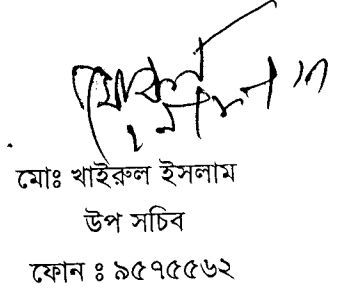 মোঃ খাইরুল ইসলাম
উপ সচিব
ফোন ঃ ৯৫৭৫৫৬২